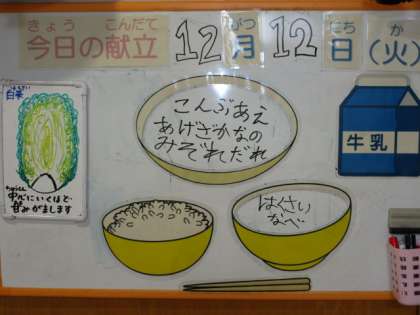 きょう こんだて がつ にち か
今日の献立 12月 12日(火)
はくさい
白菜
こんぶあえ
あげざかなの
みぞれだれ
牛乳
中心にいくほど
甘みがまします
はくさい
なべ